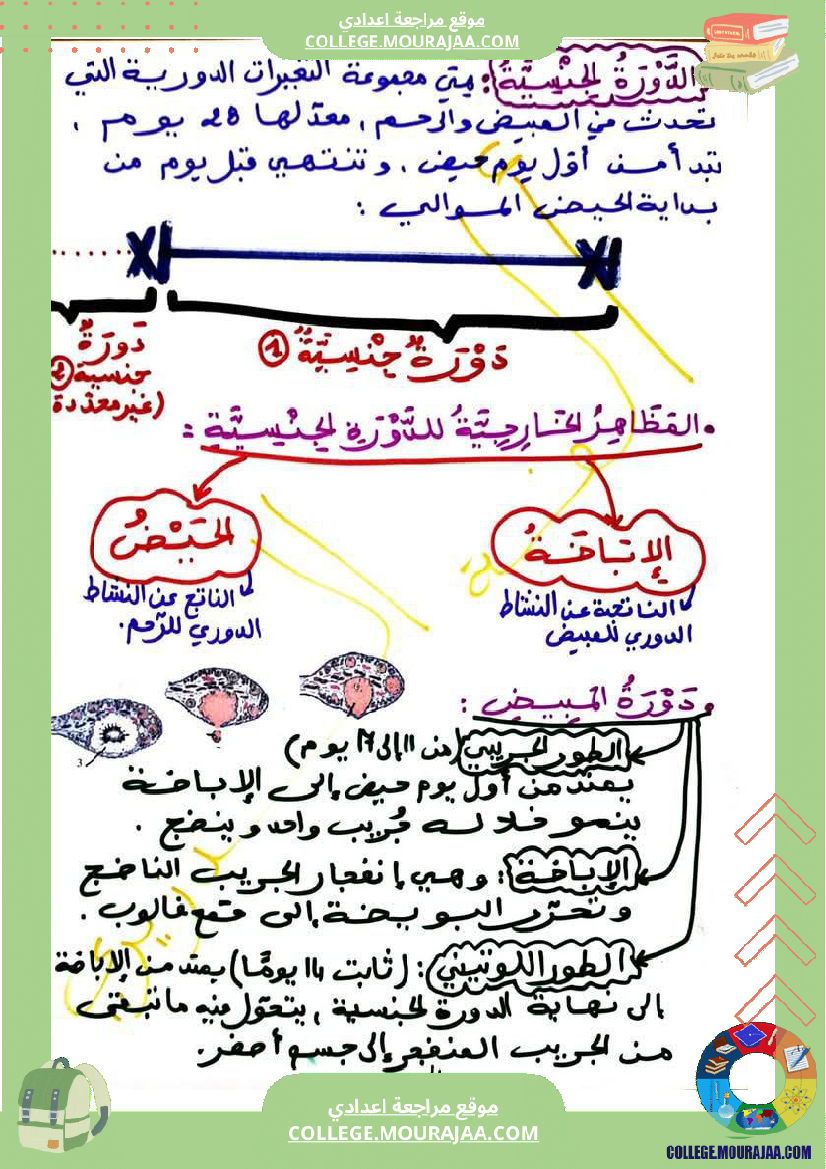 موقع مراجعة اعدادي
COLLEGE.MOURAJAA.COM
الدَّوْرَةُ الجِنْسِيَّةُ: هي مجموعة التغيرات الدورية التي
تحدث في المبيض والرحم، معدّلها 28 يوم،
تبدأ من أوّل يوم حيض، وتنتهي قبل يوم من
بداية الحيض الموالي:
دَوْرَةٌ جِنْسِيَّةٌ ①
دَورَةٌ
جنسية ②
(غير معتدة
• المَظَاهِرُ الخَارِجِيَّةُ للدَّوْرَةِ الجِنْسِيَّةِ:
الإِبَاضَةُ
الحَيْضُ
الناتجة عن النشاط
الدوري للمبيض
الناتج عن النشاط
الدوري للرّحم.
• دَوْرَةُ المَبِيضِ:
3
الطور الجريبي (من 11 إلى 17 يوم)
يمتدّ من أول يوم حيض إلى الإباضة
ينمو خلاله جُريب واحد وينضج.
الإباضة: وهي إنفجار الجريب الناضج
وتحرّر البويضة إلى قمع فالوب.
الطور اللوتييني: (ثابت 14 يومًا) يمتد من الإباضة
إلى نهاية الدورة الجنسية، يتحوّل فيه ما تبقى
من الجريب المنفجر إلى جسم أصفر.
موقع مراجعة اعدادي
COLLEGE.MOURAJAA.COM
COLLEGE.MOURAJAA.COM